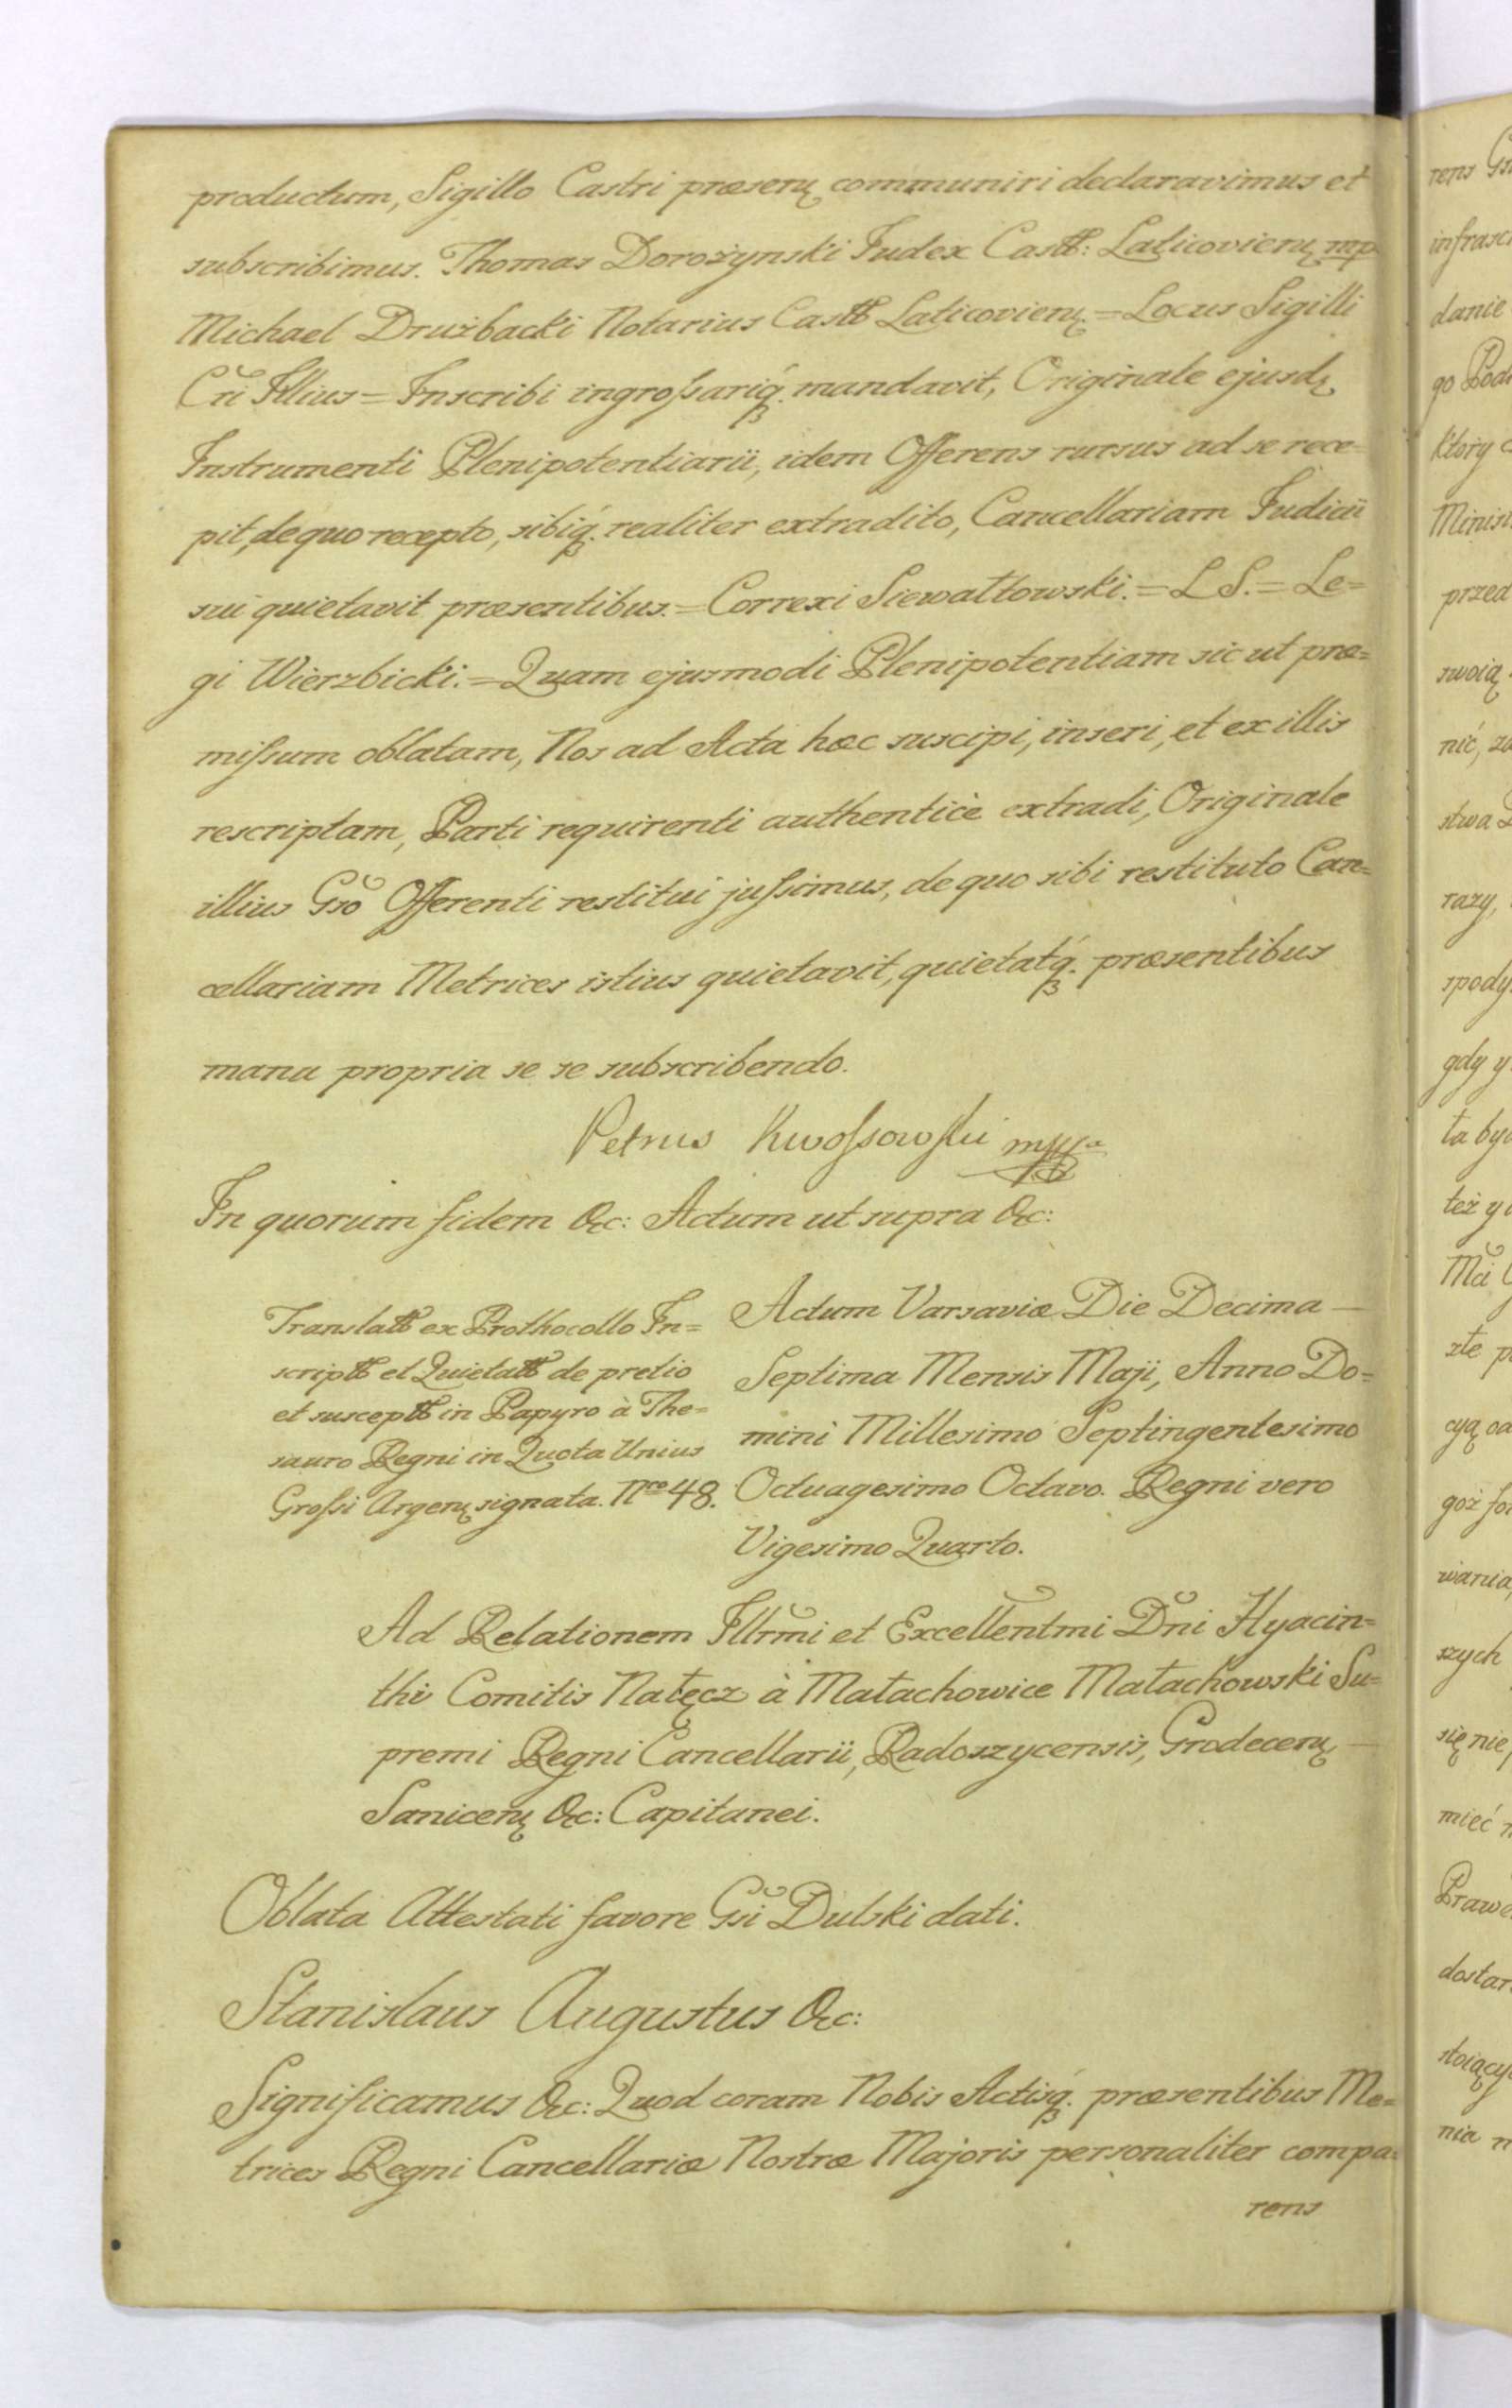 productum, Sigillo Castri præsenţ communiri declaravimus et
subscribimus. Thomas Dorożynski Judex Castt: Laticovienţ mp
Michael Drużbacki Notarius Castt Laticovienţ = Locus Sigilli
Cri Illius = Inscribi ingrossariq́. mandavit, Originale ejusdţ
Instrumenti Plenipotentiarii, idem Offerens rursus ad se rece
pit, de quo recepto, sibiq́. realiter extradito, Cancellariam Judicii
sui quietavit præsentibus. = Correxi Siewałtowski. = LS. = Le=
gi Wierzbicki. = Quam ejusmodi Plenipotentiam sic ut præ=
missum oblatam, Nos ad Acta hæc suscipi, inseri, et ex illis
rescriptam, Parti requirenti authenticè extradi, Originale
illius Gso Offerenti restitui jussimus, de quo sibi restituto Can=
cellariam Metrices istius quietavit, quietatq́. præsentibus
manu propria se se subscribendo.
Petrus Kwossowski mppa
In quorum fidem &c: Actum ut supra &c:
Translatt ex Prothocollo In=
scriptt et Quietatt de pretio
et susceptt in Papyro à The=
sauro Regni in Quota Unius
Grossi Argenţ signata. Nro 48.
Actum Varsaviæ Die Decima —
Septima Mensis Maji, Anno Do=
mini Millesimo Septingentesimo
Octuagesimo Octavo. Regni vero
Vigesimo Quarto.
Ad Relationem Illrmi et Excellentmi Dni Hyacin=
thi Comitis Natęcz à Małachowice Małachowski Su=
premi Regni Cancellarii, Radoszycensis, Grodecenţ —
Sanicenţ &c: Capitanei.
Oblata Attestati favore Gsi Dulski dati.
Stanislaus Augustus &c:
Significamus &c: Quod coram Nobis Actisq́. præsentibus Me=
trices Regni Cancellariæ Nostræ Majoris personaliter compa=
rens